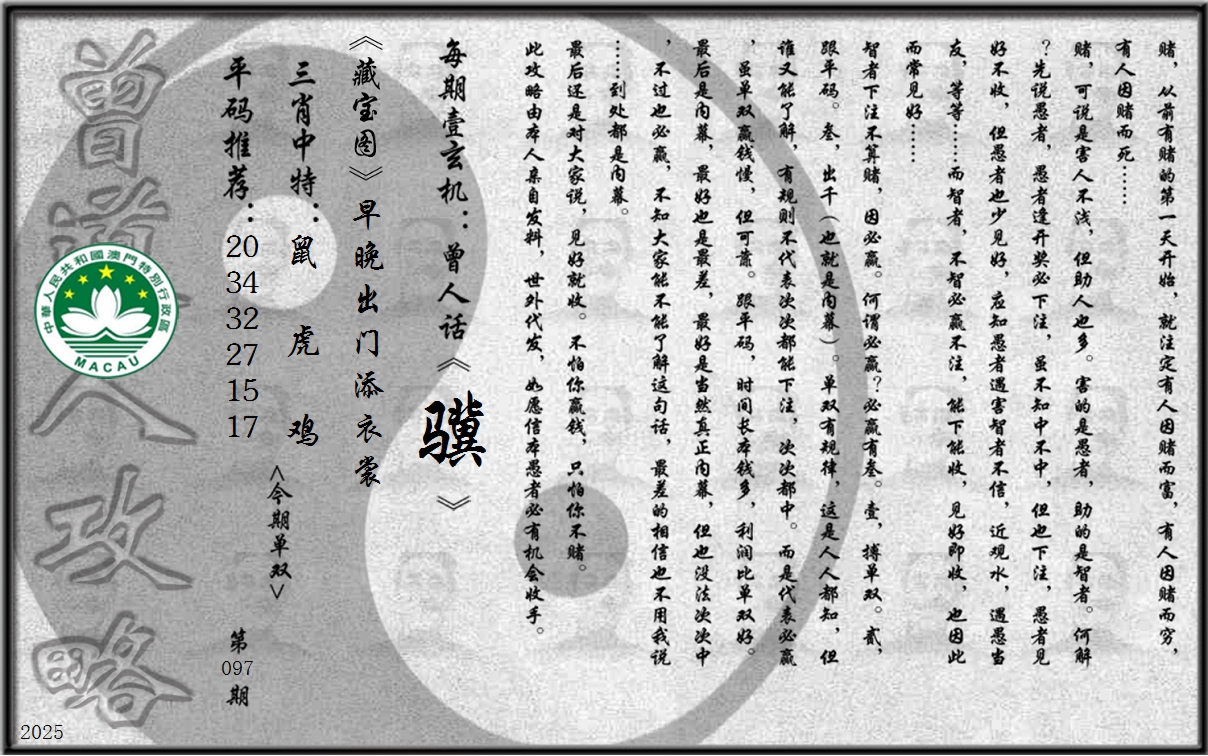 赌，从前有赌的第一天开始，就注定有人因赌而富，有人因赌而穷，
有人因赌而死……
赌，可说是害人不浅，但助人也多。害的是愚者，助的是智者。何解
？先说愚者，愚者逢开奖必下注，虽不知中不中，但也下注，愚者见
好不收，但愚者也少见好，应知愚者遇害智者不信，近观水，遇愚当
友，等等……而智者，不智必赢不注，能下能收，见好即收，也因此
而常见好……
智者下注不算赌，因必赢。何谓必赢？必赢有叁。壹，搏单双。贰，
跟平码。叁，出千（也就是内幕）。单双有规律，这是人人都知，但
谁又能了解，有规则不代表次次都能下注，次次都中。而是代表必赢
，虽单双赢钱慢，但可靠。跟平码，时间长本钱多，利润比单双好。
最后是内幕，最好也是最差，最好是当然真正内幕，但也没法次次中
，不过也必赢，不知大家能不能了解这句话，最差的相信也不用我说
……到处都是内幕。
最后还是对大家说，见好就收。不怕你赢钱，只怕你不赌。
此攻略由本人亲自发料，世外代发，如愿信本愚者必有机会收手。
每期壹玄机：曾人话《骥》
《藏宝图》早晚出门添衣裳
三肖中特：鼠 虎 鸡
<今期单双>
平码推荐：20 34 32 27 15 17
第097期
曾道人攻略
中華人民共和國澳門特別行政區
MACAU
2025